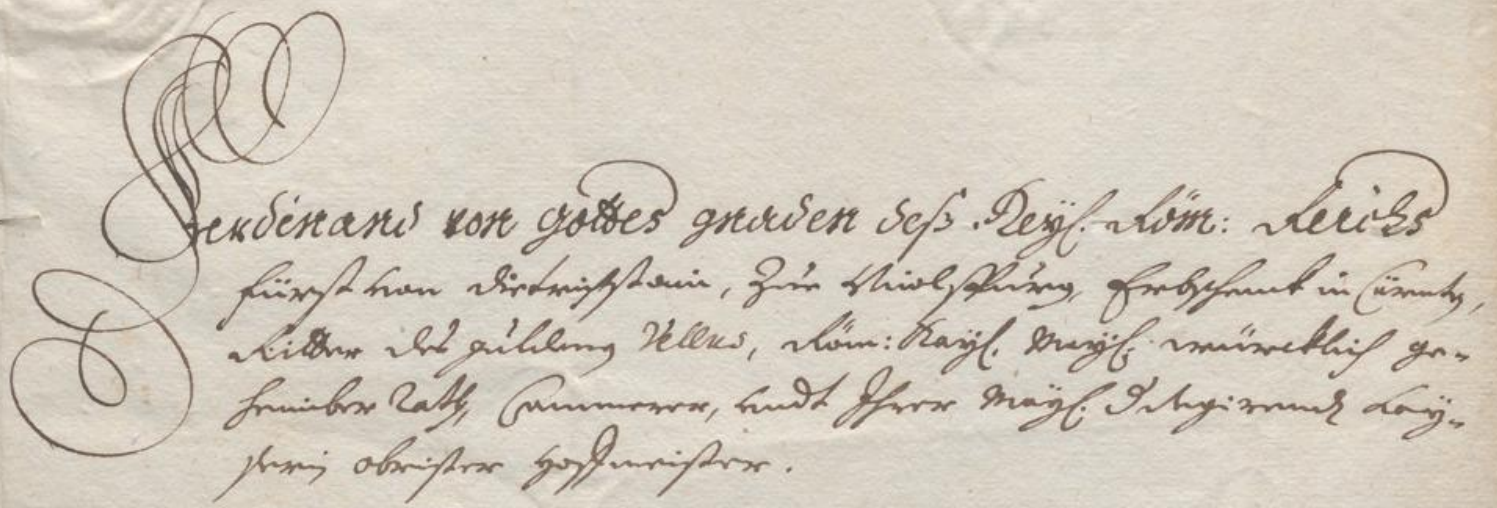 Ferdinand von Gottes gnaden deß Heyl. Röm: Reichs
Fürst von Dietrichstain, Zue Nicolspurg, Erbschenk in Cärnten,
Ritter des guldenen Vellus, Röm: Kayl. Mayl. würcklich ge-
heimber Rath, Cammerer, undt Ihrer Mayl. d Regirendt Kay-
serin obrister Hoffmeister.